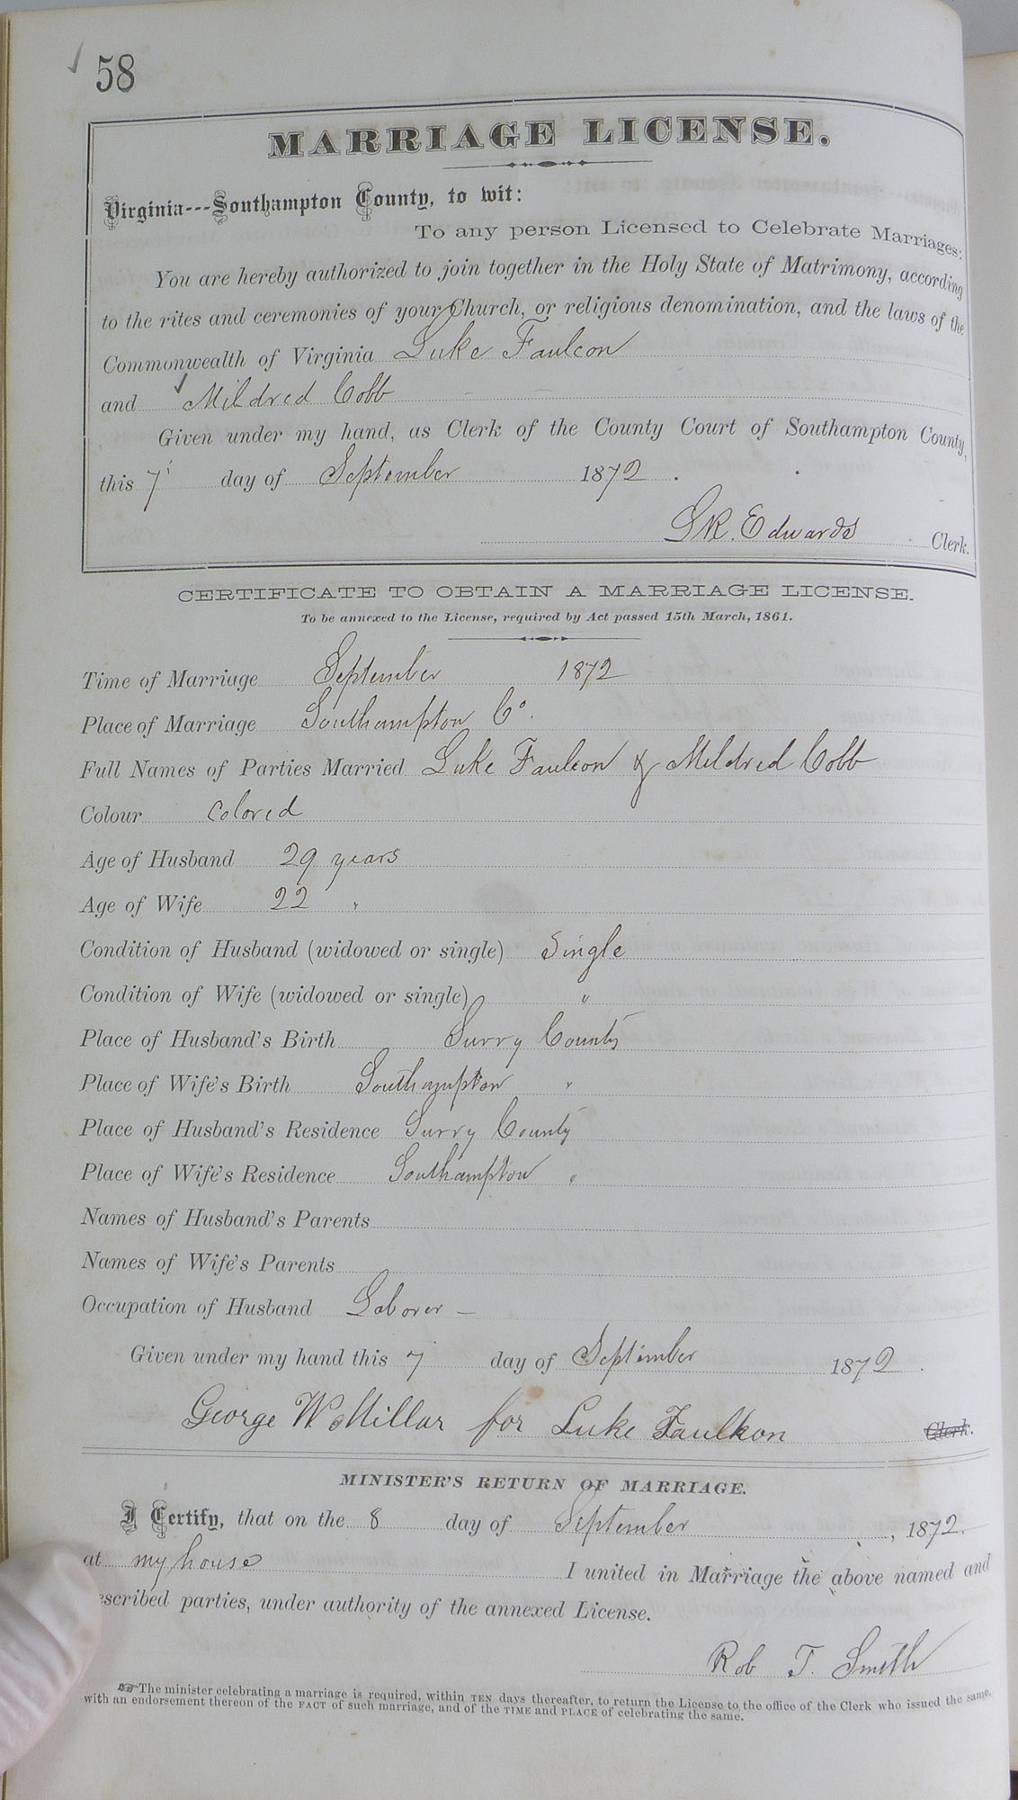 58
MARRIAGE LICENSE.
Virginia---Southampton County, to wit:
To any person Licensed to Celebrate Marriages:
You are hereby authorized to join together in the Holy State of Matrimony, according
to the rites and ceremonies of your Church, or religious denomination, and the laws of the
Commonwealth of Virginia Luke Faulcon
and Mildred Cobb
Given under my hand, as Clerk of the County Court of Southampton County,
this 7 day of September 1872.
L R. Edwards Clerk.
CERTIFICATE TO OBTAIN A MARRIAGE LICENSE.
To be annexed to the License, required by Act passed 15th March, 1861.
Time of Marriage September 1872
Place of Marriage Southampton Co.
Full Names of Parties Married Luke Faulcon & Mildred Cobb
Colour colored
Age of Husband 29 years
Age of Wife 22 "
Condition of Husband (widowed or single) Single
Condition of Wife (widowed or single) "
Place of Husband's Birth Surry County
Place of Wife's Birth Southampton "
Place of Husband's Residence Surry County
Place of Wife's Residence Southampton "
Names of Husband's Parents
Names of Wife's Parents
Occupation of Husband Laborer —
Given under my hand this 7 day of September 1872.
George W Millar for Luke Faulkon Clerk.
MINISTER'S RETURN OF MARRIAGE.
I Certify, that on the 8 day of September, 1872.
at my house I united in Marriage the above named and
escribed parties, under authority of the annexed License.
Rob T. Smith
☞ The minister celebrating a marriage is required, within TEN days thereafter, to return the License to the office of the Clerk who issued the same,
with an endorsement thereon of the FACT of such marriage, and of the TIME and PLACE of celebrating the same.